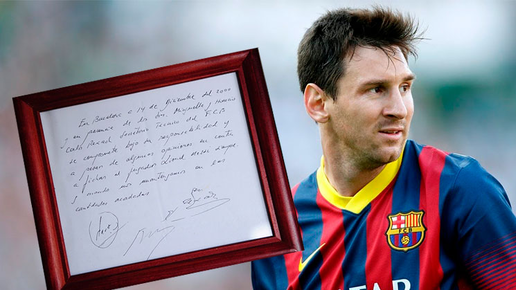 En Barcelona a 14 de Diciembre del 2000
y en presencia de los Sres Minguella y Horacio
Carles Rexach Secretario Tecnico del F.C.B
se compromete bajo su responsabilidad y
a pesar de algunas opiniones en contra
a fichar al jugador Lionel Messi siempre
y cuando nos mantengamos en las
cantidades acordadas
FCB